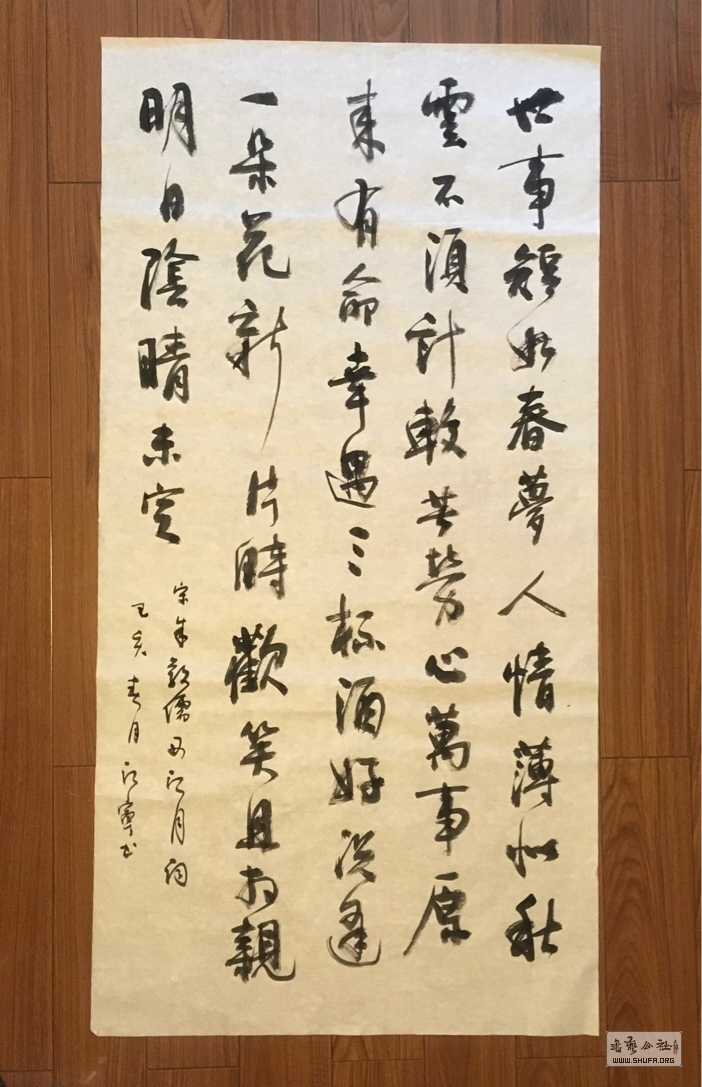 世事短如春夢人情薄似秋
雲不須計較苦勞心萬事原
來有命幸遇三杯酒好況逢
一朵花新片時歡笑且相親
明日陰晴未定
宋朱敦儒西江月詞
己亥春月江寧書
書藝公社
WWW.SHUFA.ORG